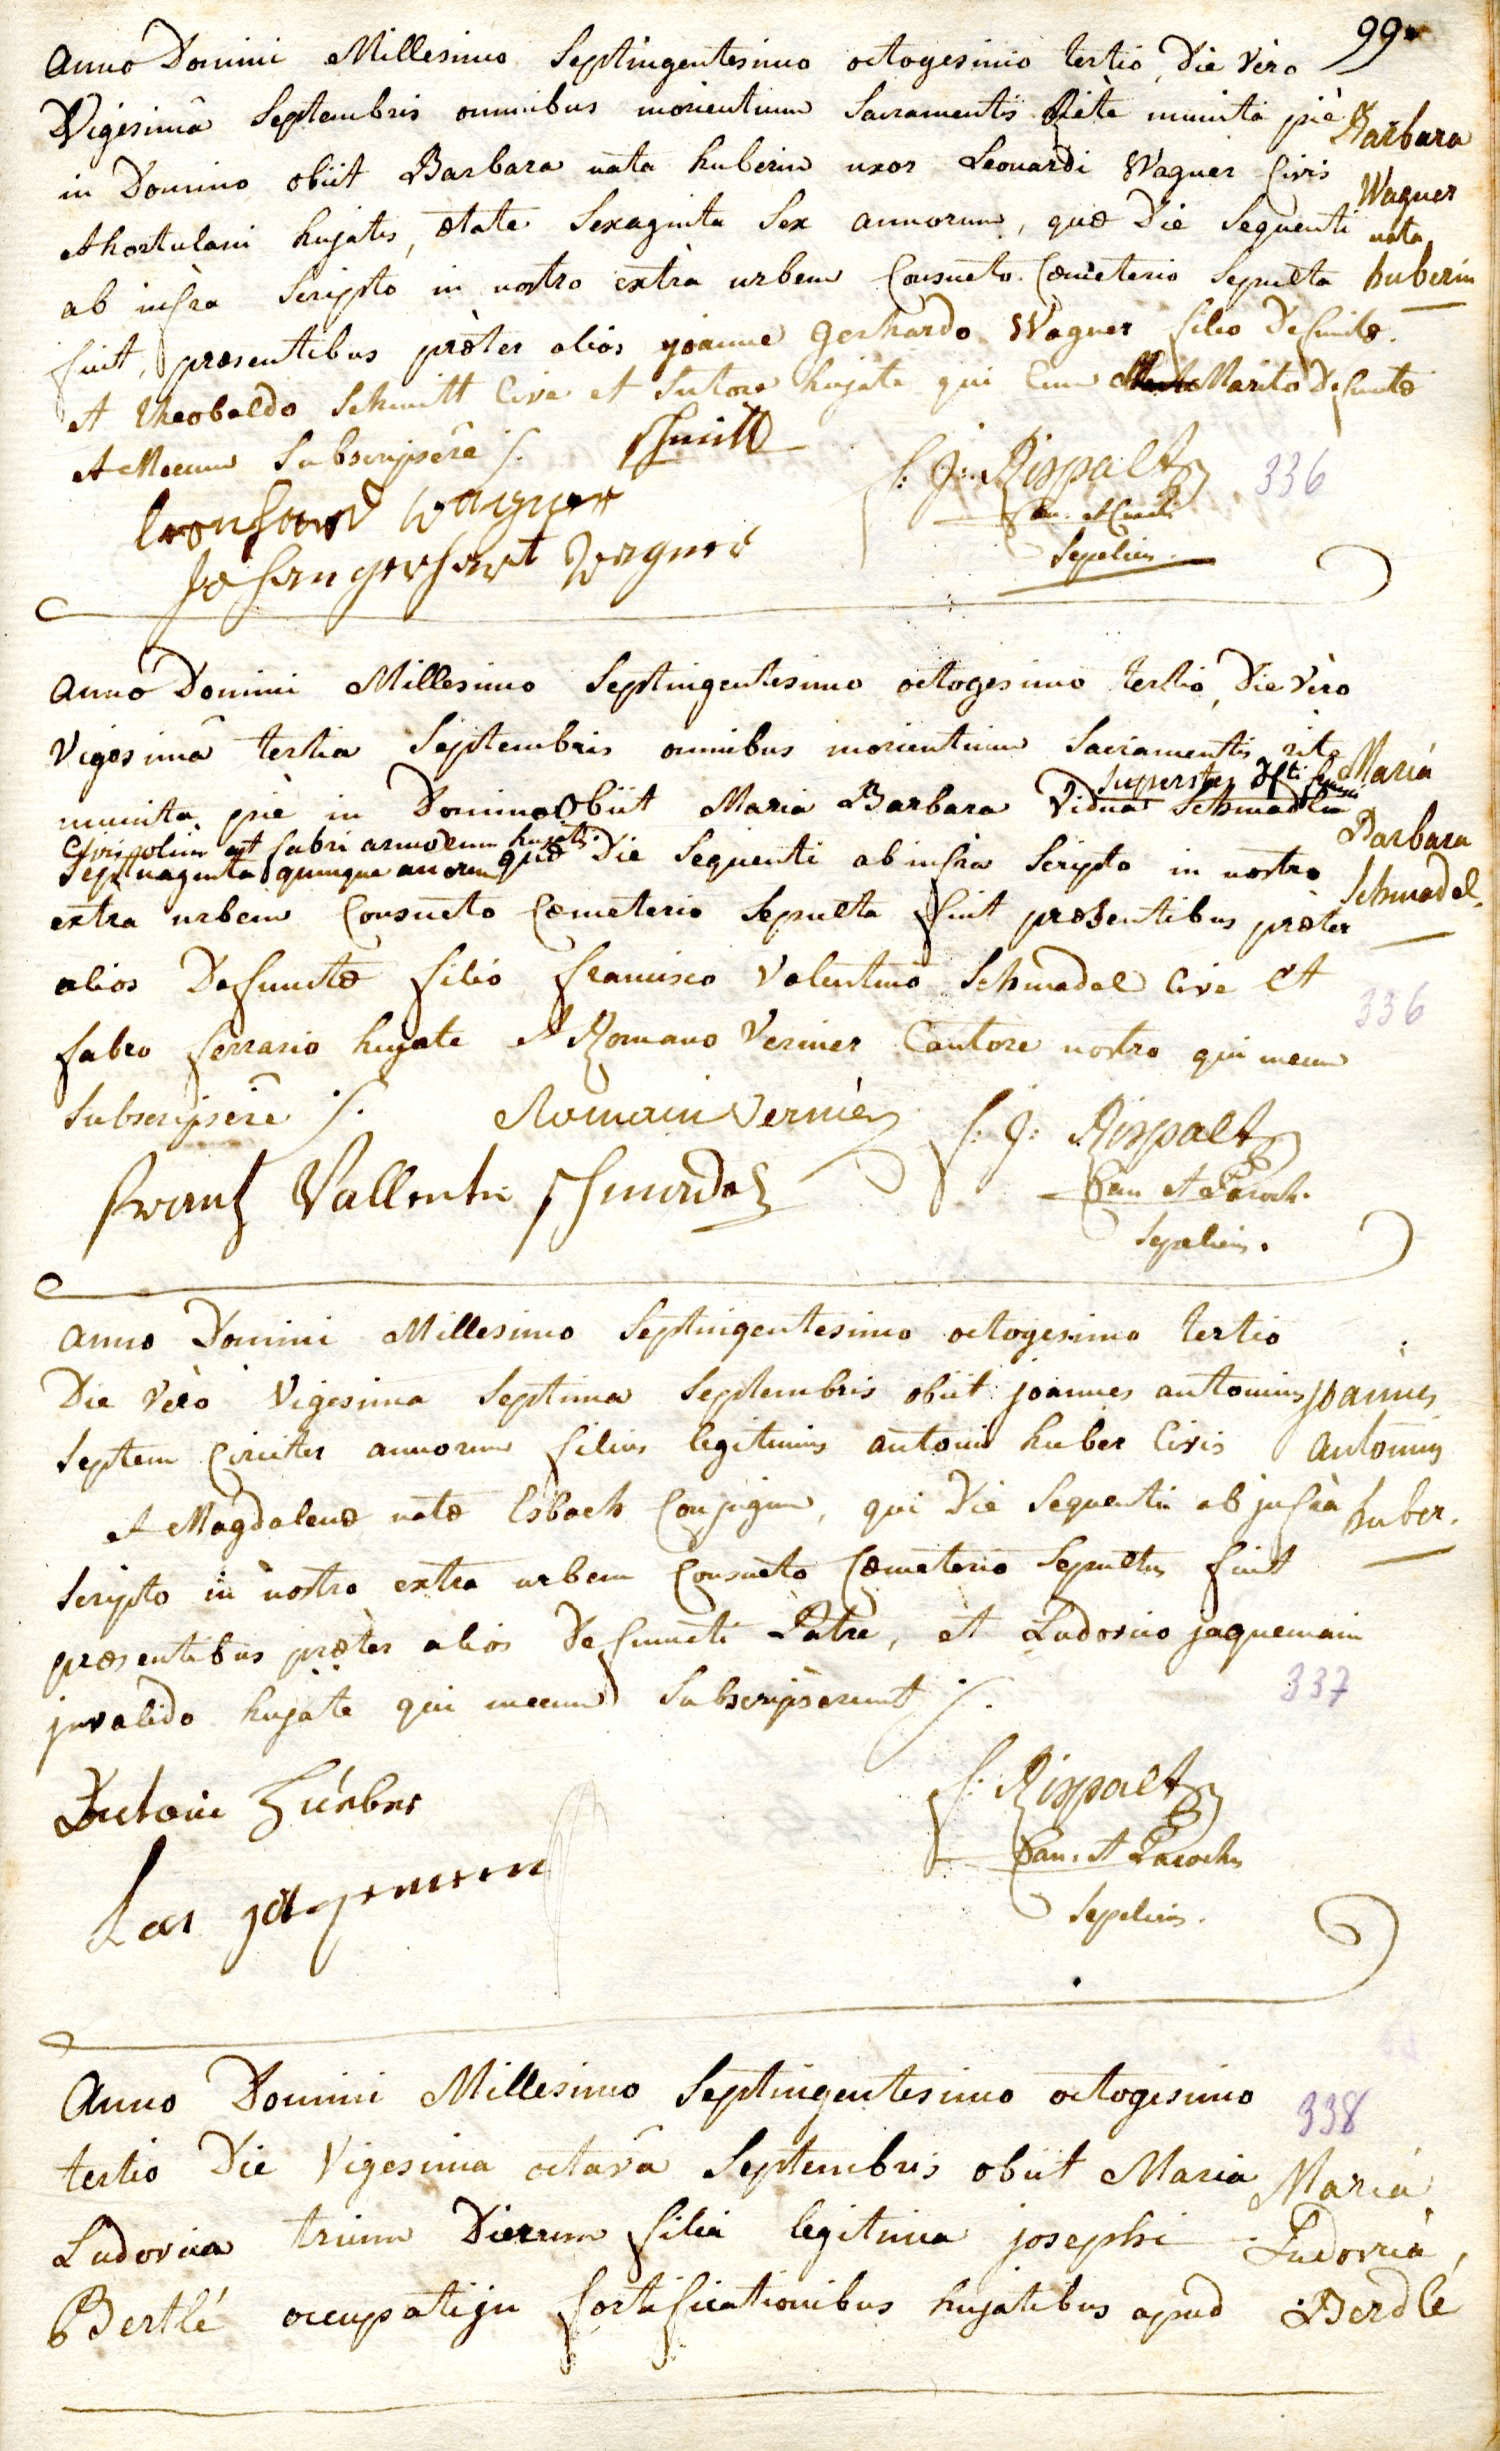 99.
Anno Domini Millesimo Septingentesimo octogesimo tertio, Die vero
Vigesimâ Septembris omnibus morientium Sacramentis Ritè munita piè
in Domino obiit Barbara nata huberin uxor Leonardi Wagner Civis
et hortulani hujatis, ætate Sexaginta Sex annorum, quæ Die Sequenti
ab infra Scripto in nostro extrà urbem Consueto Cæmeterio Sepulta
fuit, præsentibus præter alios joanne Gerhardo Wagner filio Defunctæ
et Theobaldo Schmitt Cive et Sutore hujate qui Cum Marito Defunctæ
et Mecum Subscripsêre ./.
Barbara
Wagner
nata
huberin
Schmitt
F: J: Rispalt
Sepeliens.
336
leonhard wagner
Johan gerhart Wagner
Anno Domini Millesimo Septingentesimo octogesimo tertio, Die vèro
Vigesimâ tertia Septembris omnibus morientium Sacramentis rite
munita piè in Domino Obiit Maria Barbara Vidua Superstes Schmadlin
Civis olim et fabri armorum hujatis
Septuaginta quinque annorum quæ Die Sequenti ab infra Scripto in nostro
extra urbem Consueto Cæmeterio Sepulta fuit præsentibus præter
alios Defunctæ filio francisco Valentino Schmadel Cive et
fabro ferrario hujate et Romano Vernier Cantore nostro qui mecum
Subscripsêre ./.
Maria
Barbara
Schmadel.
336
Romain Vernier
F: J: Rispalt
Can. et Paroch.
Sepeliens.
Frantz Vallentin Schmadel
Anno Domini Millesimo Septingentesimo octogesimo tertio
Die vèro Vigesima Septima Septembris obiit joannes antonius
Septem Circiter annorum filius legitimus antonii huber Civis
et Magdalenæ natæ Esbach Conjugum, qui Die Sequenti ab jnfrà
Scripto in nostro extra urbem Consueto Cæmeterio Sepultus fuit
præsentibus præter alios Defuncti Patre, et Ludovico jaquemain
jnvalido hujate qui mecum Subscripserunt ./.
joannes
antonius
huber.
337
Antoni Hueber
F: Rispalt
Can. et Parochus
Sepeliens.
Anno Domini Millesimo Septingentesimo octogesimo
tertio Die Vigesima octavâ Septembris obiit Maria
Ludovica trium Dierum filia legitima josephi
Bertlé occupati jn fortificationibus hujatibus apud
338
Maria
Ludovica
Berdlé